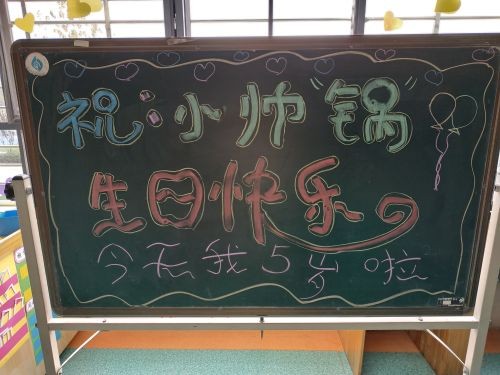 祝:小帅"锅"
生日快乐
今天我5岁啦